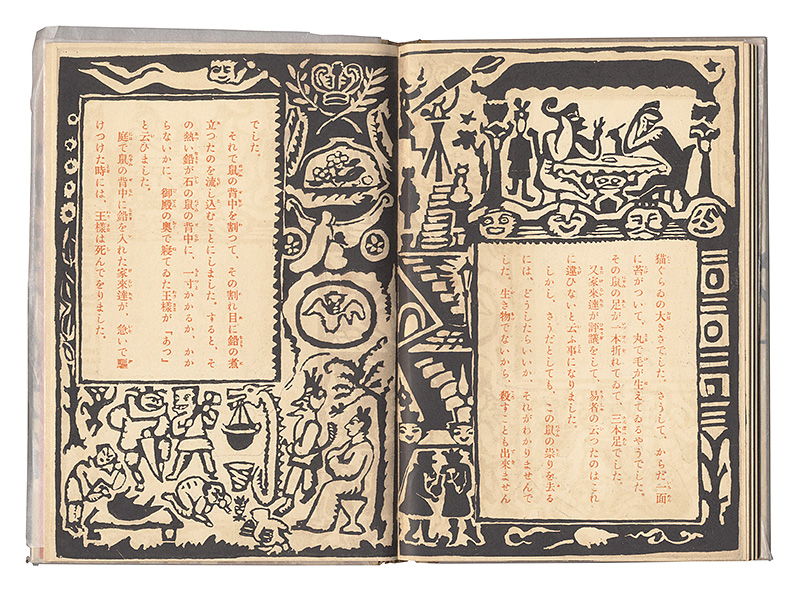 猫ぐらゐの大きさでした。さうして、からだ一面
に苔がついて、丸で毛が生えてゐるやうでした。
その鼠の足が一本折れてゐて、三本足でした。
又家來達が評議をして、易者の云つたのはこれ
に違ひないと云ふ事になりました。
しかし、さうだとしても、この鼠の祟りを去る
には、どうしたらいいか、それがわかりませんで
した。生き物でないから、殺すことも出來ません
でした。
それで鼠の背中を割つて、その割れ目に鉛の煮
立つたのを流し込むことにしました。すると、そ
の熱い鉛が石の鼠の背中に、一寸かかるか、かか
らないかに、御殿の奧で寢てゐた王樣が「あつ」
と云ひました。
庭で鼠の背中に鉛を入れた家來達が、急いで驅
けつけた時には、王樣は死んでをりました。